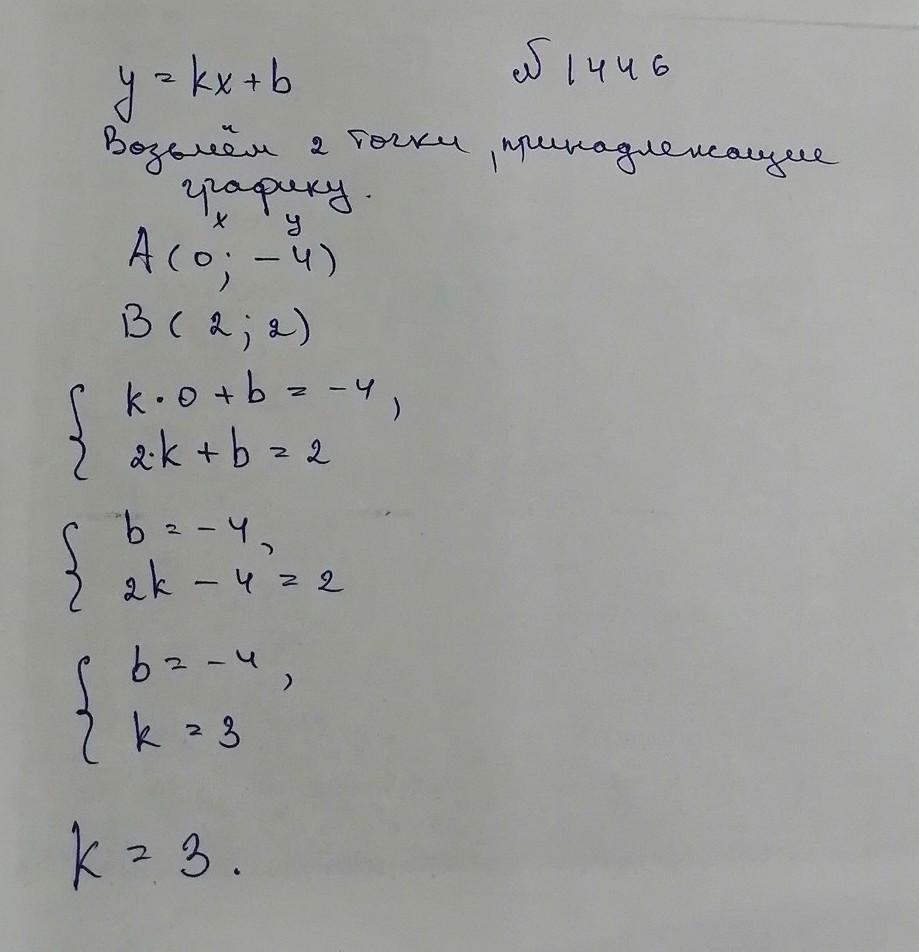 y = kx + b
№ 1446
Возьмём 2 точки, принадлежащие
графику.
x y
A ( 0 ; -4 )
B ( 2 ; 2 )
{ k · 0 + b = -4,
2·k + b = 2
{ b = -4,
2k - 4 = 2
{ b = -4,
k = 3
k = 3.